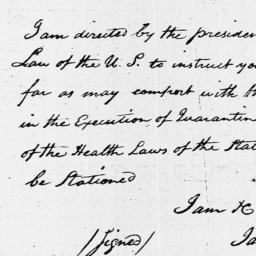 I am directed by the presiden
Law of the U. S. to instruct yo
far as may comport with th
in the Execution of Quarantin
of the Health Laws of the Stat
be Stationed
I am H
(Signed) Ja